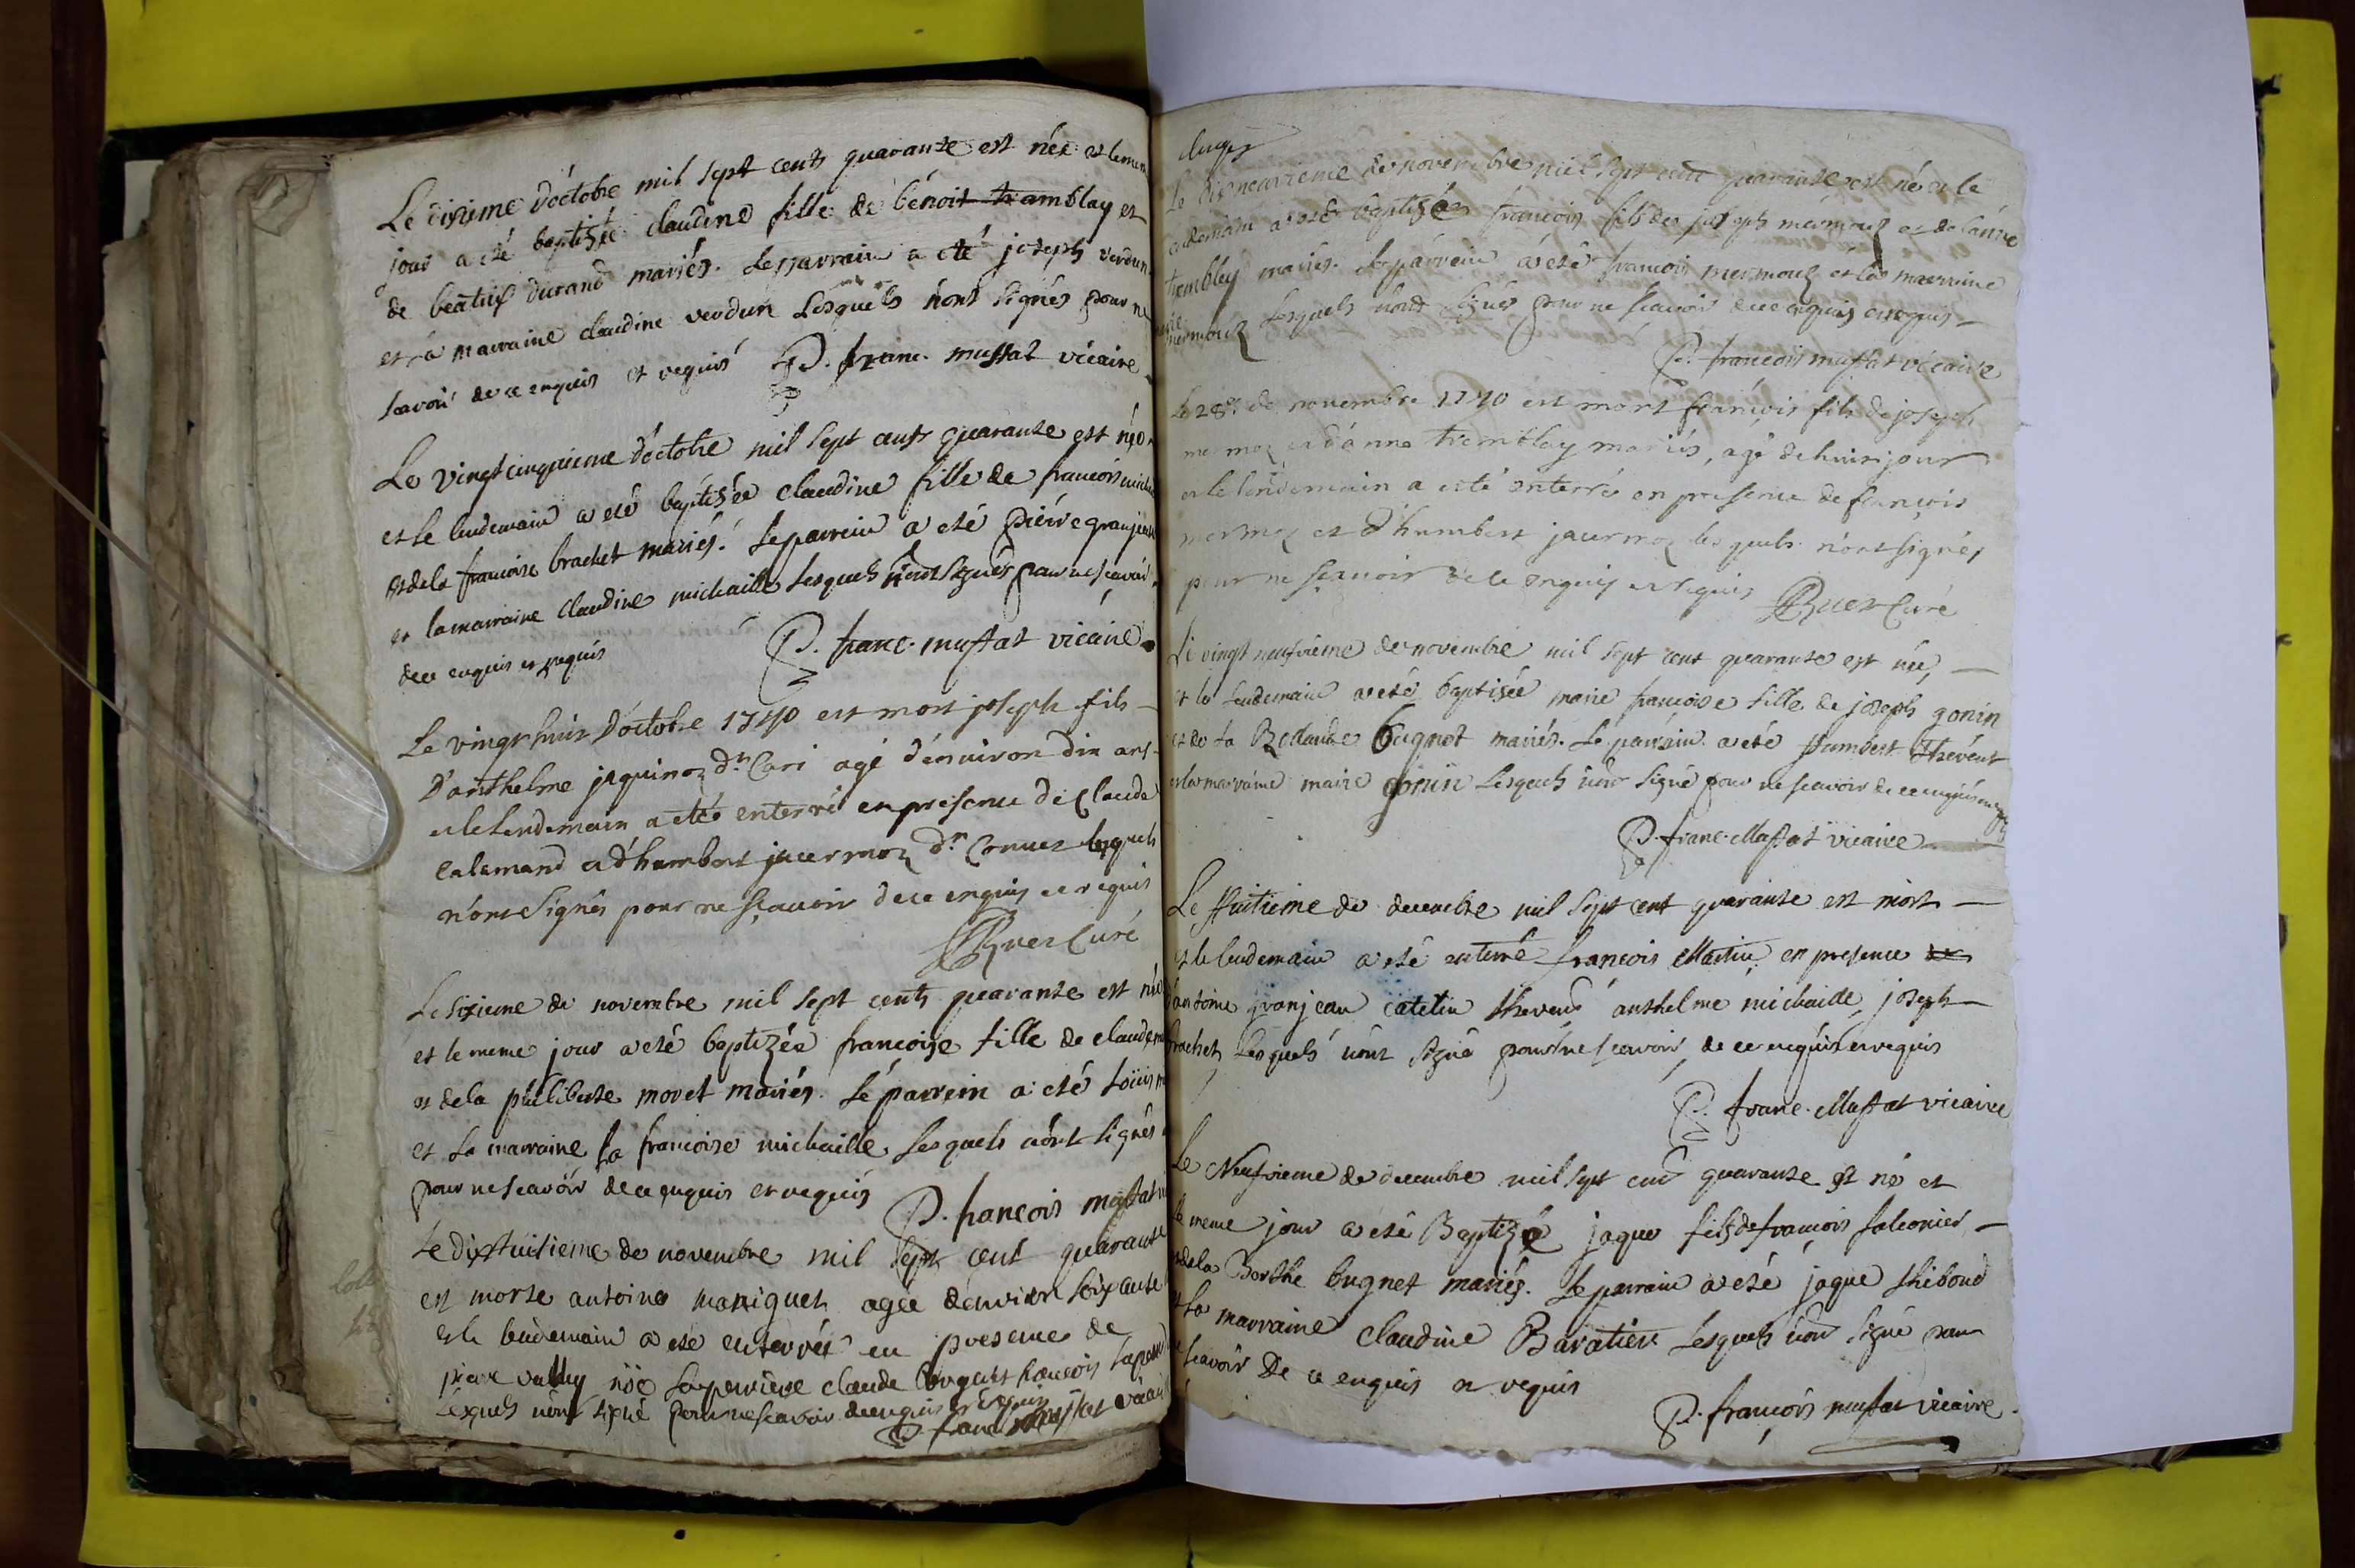 Le dixieme d'octobre mil sept cents quarante est née et le meme
jour a été baptizée claudine fille de bénoit tramblay et
de beatrix durand mariés. Le parrain a été joseph verdun
et la marraine claudine verdun Lesquels n'ont signés pour ne
scavoir de ce enquis et requis P. franc. muffat vicaire
Le vingt cinquieme d'octobre mil sept cents quarante est née
et le lendemain a eté baptisée claudine fille de francois
et de la francoise brachet mariés. Le parrain a eté pierre granjean
et la marraine claudine michaille lesquels n'ont signés pour ne scavoir
de ce enquis et requis P. franc. muffat vicaire
Le vingt huit d'octobre 1740 est mort joseph fils
D'anthelme jaquinoz dt Cari agé d'environ dix ans
et le lendemain a eté enterré en presence de Claude
calamand et d'humbert jacermoz dt Cornuez lesquels
n'ont signés pour ne sçavoir de ce enquis et requis
Buez Curé
Le sixieme de novembre mil sept cents quarante est née
et le meme jour a eté baptizée francoise fille de claude
et de la philiberte moret mariés. Le parrein a eté loüis
et la marraine la francoise michaille lesquels n'ont signés
pour ne scavoir de ce enquis et requis P. francois muffat
Le dixhuitieme de novembre mil sept cent quarante
est morte antoina maniquet agée d'environ soixante
et le lendemain a eté enterrée en presence de
piere vallay claude bugnet francois
Lesquels n'ont signé pour ne scavoir de ce enquis et requis
P. franc muffat vicaire
Le dixneuvieme de novembre mil sept cent quarante est né et le
lendemain a eté baptizé francois fils de joseph mermoz et de l'anne
tremblay mariés. Le parrein a eté francois mermouz et la marraine
mermouz lesquels n'ont signés pour ne scavoir de ce enquis et requis
P. francois muffat vicaire
Le 28e de novembre 1740 est mort françois fils de joseph
mermoz et d'anne tremblay mariés, agé de huit jour
et le lendemain a eté enterré en presence de françois
mermoz et d'humbert jacermoz lesquels n'ont signés
pour ne sçavoir de ce enquis et requis Buez Curé
Le vingt neufvieme de novembre mil sept cent quarante est née,
et le lendemain a eté baptisée marie francoise fille de joseph gonin
et de la Bugnet mariés. Le parrain a eté humbert thévent
et la marraine marie gonin Lesquels n'ont signé pour ne scavoir de ce enquis
P. franc. Muffat vicaire
Le Huitieme de decembre mil sept cent quarante est mort
et le lendemain a eté enterré francois Martin en presence de
d'antoine granjean catelin thevend anthelme michaille, joseph
brachet, Lesquels n'ont signé pour ne scavoir, de ce enquis et requis
P. franc. Muffat vicaire
Le Neufvieme de decembre mil sept cent quarante est né et
le meme jour a eté Baptizé jaque fils de francois falconier
et de la Berthe bugnet mariés. Le parrain a eté jaque thiboud
et la marraine claudine Baratier Lesquels n'ont signé pour
ne scavoir De ce enquis et requis
P. francois muffat vicaire.